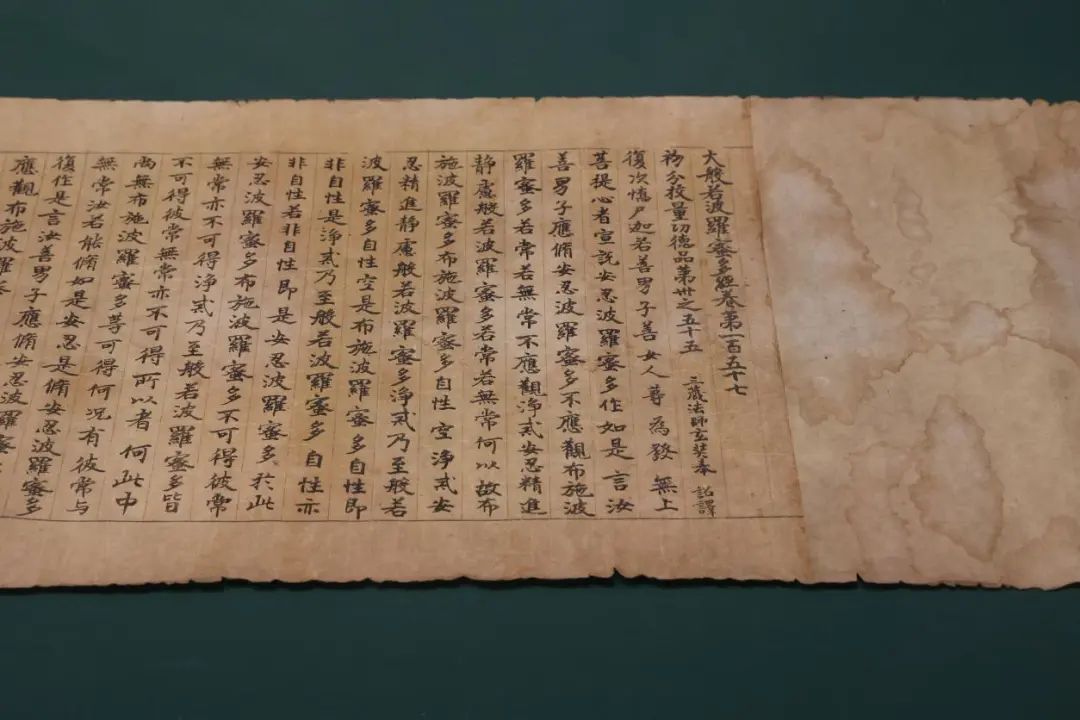 大般若波羅蜜多經卷第一百五十七
初分挍量功德品第卅之五十五 三藏法師玄奘奉 詔譯
復次憍尸迦若善男子善女人等為發無上
菩提心者宣説安忍波羅蜜多作如是言汝
善男子應脩安忍波羅蜜多不應觀布施波
羅蜜多若常若無常不應觀淨戒安忍精進
静慮般若波羅蜜多若常若無常何以故布
施波羅蜜多布施波羅蜜多自性空淨戒安
忍精進静慮般若波羅蜜多淨戒乃至般若
波羅蜜多自性空是布施波羅蜜多自性即
非自性是淨戒乃至般若波羅蜜多自性亦
非自性若非自性即是安忍波羅蜜多於此
安忍波羅蜜多布施波羅蜜多不可得彼常
無常亦不可得淨戒乃至般若波羅蜜多皆
不可得彼常無常亦不可得所以者何此中
尚無布施波羅蜜多等可得何況有彼常与
無常汝若能脩如是安忍是脩安忍波羅蜜多
復作是言汝善男子應脩安忍波羅
應觀布施波羅